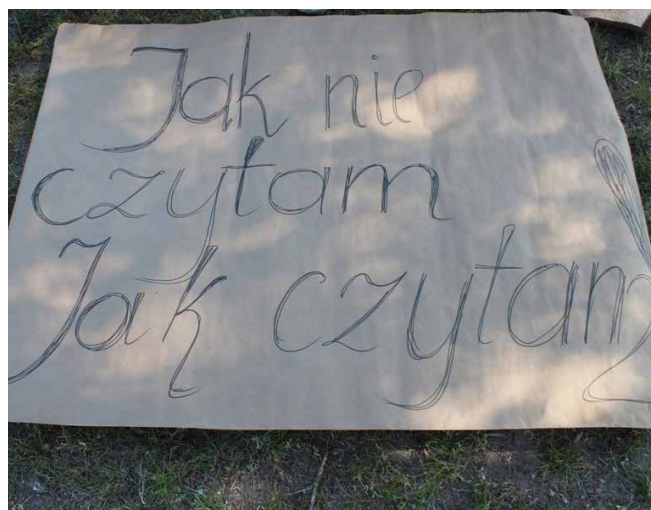 Jak nie
czytam
Jak czytam!